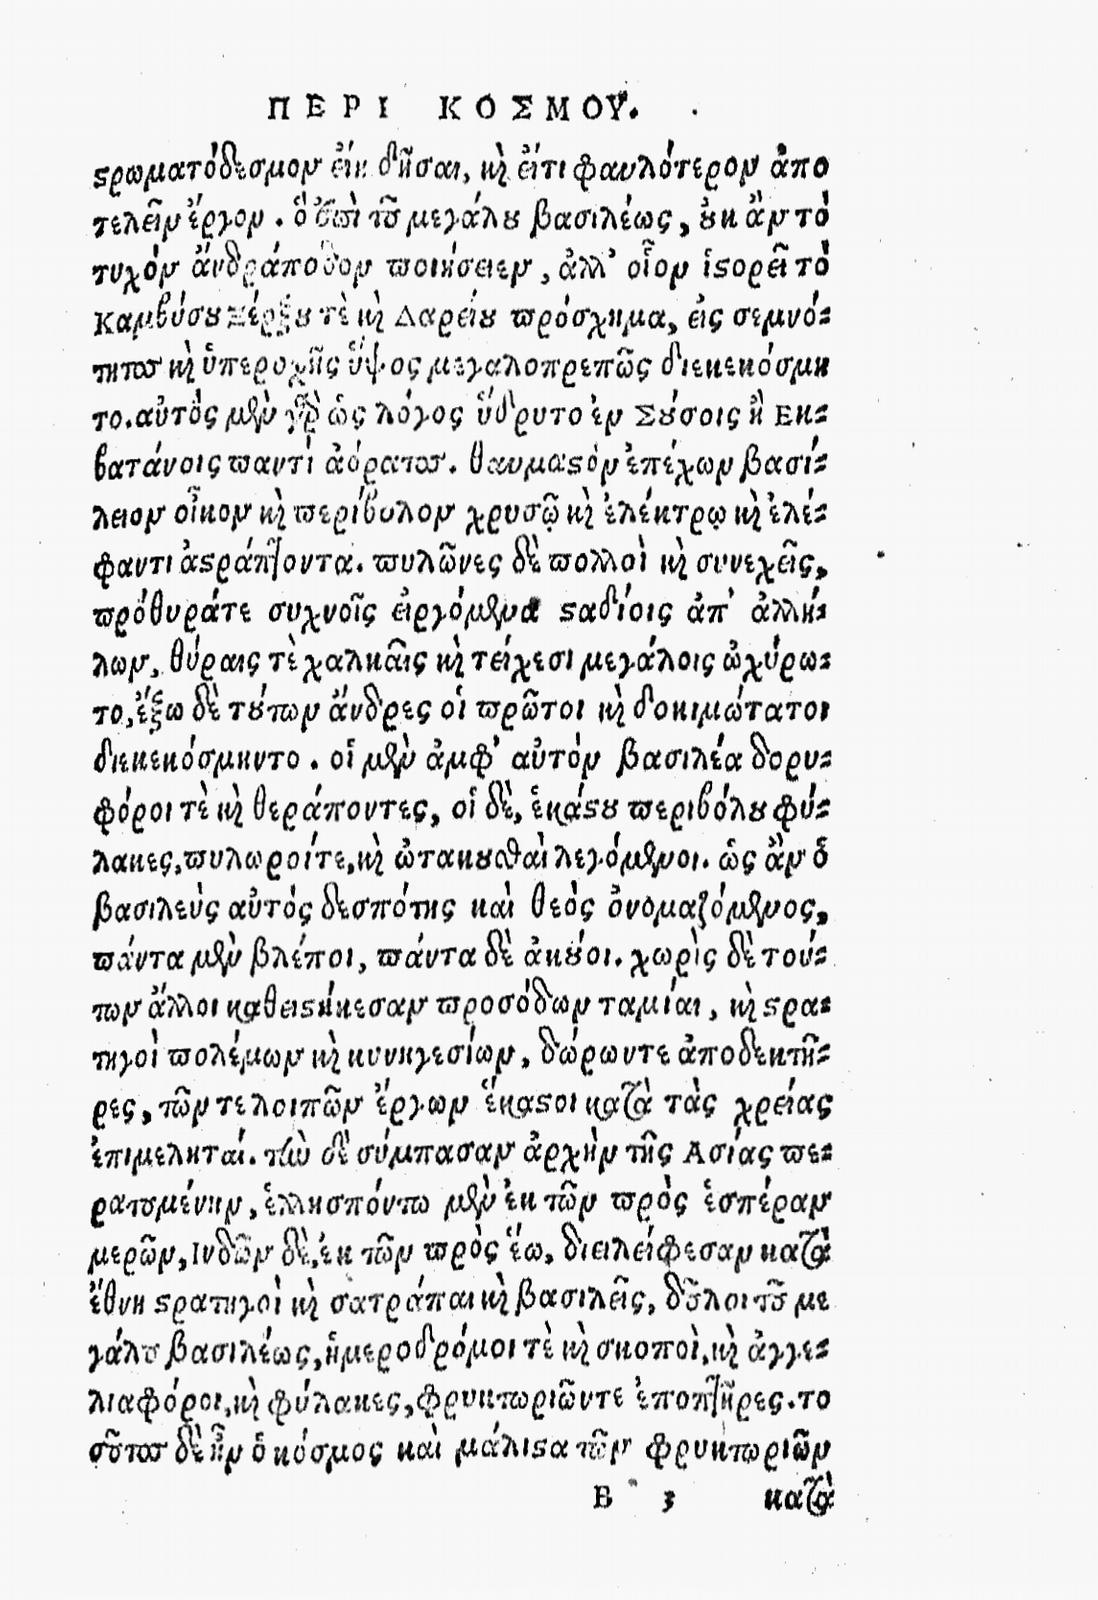 ΠΕΡΙ ΚΟΣΜΟΥ.
ϛρωματόδεσμον εἴη δῆσαι, κὴ εἴτι φαυλότερον ἀπο
τελεῖν ἔργον. ὁ ἐπὶ τοῦ μεγάλου βασιλέως, ουκ ἂν τὸ
τυχὸν ἄνδράποδον ποιήσειεν, ἀλλ' οἷον ἱϛορεῖ τὸ
Καμβύσου Ξέρξου τὲ κὴ Δαρείου πρόσχημα, εἰς σεμνό-
τητος κὴ ὑπεροχῆς ὕψος μεγαλοπρεπῶς διεκεκόσμη
το. αὐτὸς μὲν γὰρ ὡς λόγος ὕδρυτο ἐν Σούσοις ἢ Εκ-
βατάνοις παντὶ ἀόρατος. θαυμαϛὸν ἐπέχων βασί-
λειον οἶκον κὴ περίβολον χρυσῷ κὴ ἐλέκτρῳ κὴ ἐλέ-
φαντι ἀϛράπτοντα. πυλῶνες δὲ πολλοὶ κὴ συνεχεῖς,
πρόθυράτε συχνοῖς εἰργόμενα ϛαδίοις ἀπ' ἀλλή-
λων, θύραις τὲ χαλκαῖς κὴ τείχεσι μεγάλοις ὠχύρω-
το, ἔξω δὲ τούτων ἄνδρες οἱ πρῶτοι κὴ δοκιμώτατοι
διεκεκόσμηντο. οἱ μὲν ἀμφ' αὐτὸν βασιλέα δορυ-
φόροι τὲ κὴ θεράποντες, οἱ δὲ, ἑκάϛου περιβόλου φύ-
λακες, πυλωροίτε, κὴ ὠτακουσταὶ λεγόμενοι. ὡς ἂν ὁ
βασιλεὺς αὐτὸς δεσπότης καὶ θεὸς ὀνομαζόμενος,
πάντα μὲν βλέποι, πάντα δὲ ἀκούοι. χωρὶς δὲ τού-
των ἄλλοι καθειϛήκεσαν προσόδων ταμίαι, κὴ ϛρα-
τηγοὶ πολέμων κὴ κυνηγεσίων, δώρωντε ἀποδεκτῆ-
ρες, τῶν τε λοιπῶν ἔργων ἕκαϛοι κατὰ τὰς χρείας
ἐπιμεληταί. τὼ δὲ σύμπασαν ἀρχὴν τῆς Ασίας πε-
ρατουμένην, ἑλλησπόντω μὲν ἐκ τῶν πρὸς ἑσπέραν
μερῶν, Ινδῶν δὲ, ἐκ τῶν πρὸς ἕω, διειλείφεσαν κατὰ
ἔθνη ϛρατηγοὶ κὴ σατράπαι κὴ βασιλεῖς, δοῦλοι τοῦ με
γάλου βασιλέως, ἡμεροδρόμοι τὲ κὴ σκοποὶ, κὴ ἀγγε-
λιαφόροι, κὴ φύλακες, φρυκτωριῶντε ἐποπτῆρες. το
σοῦτος δὲ ἦν ὁ κόσμος καὶ μάλιϛα τῶν φρυκτωριῶν
B 3 κατὰ